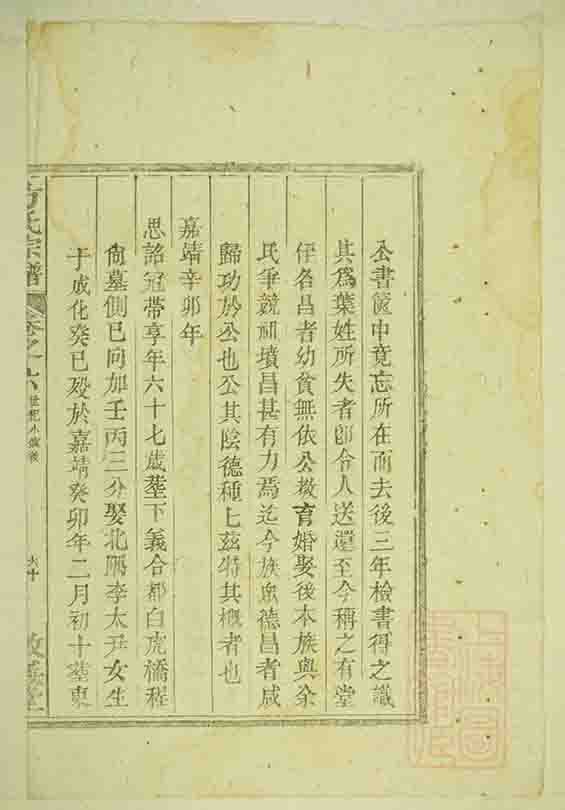 公書篋中竟忘所在而去後三年檢書得之識
其為葉姓所失者卽令人送還至今稱之有堂
侄名昌者幼貧無依公撫育婚娶後本族與余
氏爭競祖墳昌甚有力焉迄今族眾德昌者咸
歸功於公也公其陰德種七茲特其概者也
嘉靖辛卯年
恩詔冠帶享年六十七歲塟下義合都白虎橋程
尙墓側巳向加壬丙三分娶北隅李太尹女生
于成化癸巳歿於嘉靖癸卯年二月初十塟東
方氏宗譜
卷之十八
世紀小傳後
六十
敦義堂